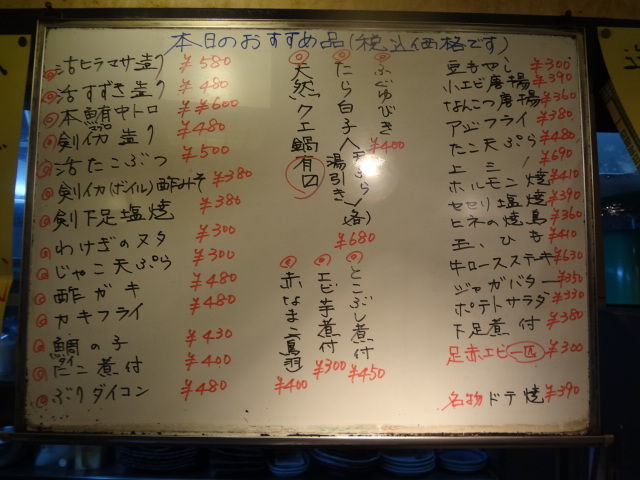 本日のおすすめ品(税込価格です)
活ヒラマサ造り ¥580
活すずき造り ¥480
本鮪中トロ ¥600
剣イカ造り ¥480
活たこぶつ ¥500
剣イカ(ボイル)酢みそ ¥380
剣下足塩焼 ¥380
わけぎのヌタ ¥300
じゃこ天ぷら ¥300
酢ガキ ¥480
カキフライ ¥480
鯛の子 ¥430
たこ煮付 ¥400
ぶりダイコン ¥480
ふぐゆびき ¥400
たら白子(天ぷら/湯引き/各) ¥680
天然クエ鍋有四
とこぶし煮付 ¥450
エビ芋煮付 ¥300
赤なまこ鳥羽 ¥400
¥300
小エビ唐揚 ¥390
なんこつ唐揚 ¥360
アジフライ ¥380
たこ天ぷら ¥480
上ミノ ¥690
ホルモン焼 ¥410
セセリ塩焼 ¥390
ヒネの焼鳥 ¥360
玉ひも ¥410
牛ロースステーキ ¥630
ジャガバター ¥350
ポテトサラダ ¥330
下足煮付 ¥380
足赤エビ一匹 ¥300
名物ドテ焼 ¥390